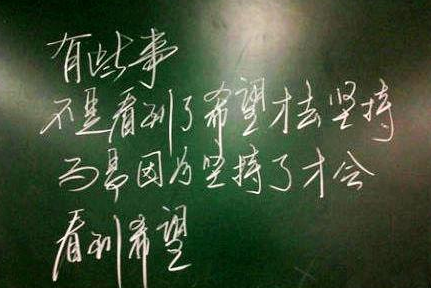 有些事
不是看到了希望才去坚持
而是因为坚持了才会
看到希望